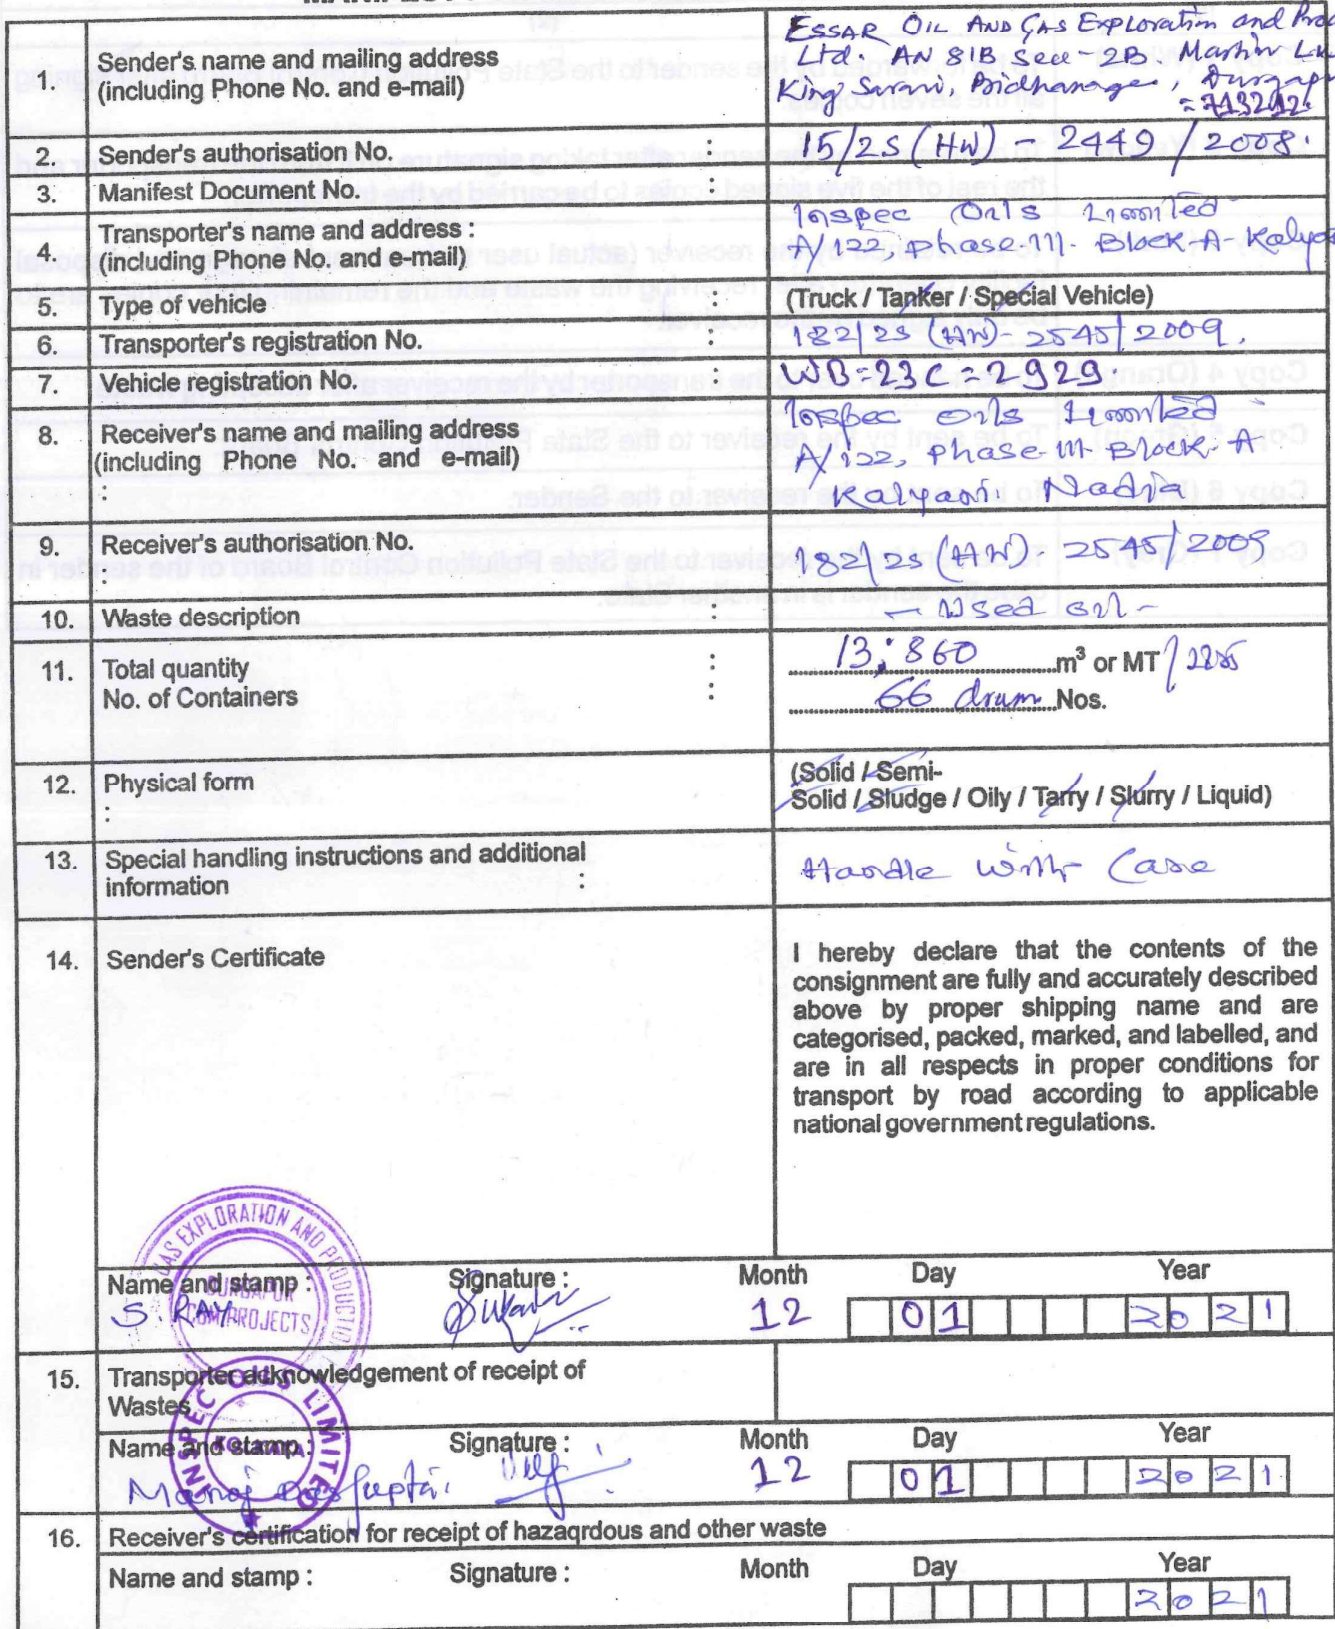 1. Sender's name and mailing address
(including Phone No. and e-mail)
ESSAR OIL AND GAS Exploration and
Ltd. AN 81B Sec-2B Martin
King Sarani, Bidhanagar,
= 713212.
2. Sender's authorisation No. : 15/2S (HW) - 2449 / 2008.
3. Manifest Document No. :
4. Transporter's name and address :
(including Phone No. and e-mail)
Inspec Oils Limited
A/122, phase-III. Block-A-
5. Type of vehicle : (Truck / Tanker / Special Vehicle)
6. Transporter's registration No. : 182/2S (HW) - 2545/2009.
7. Vehicle registration No. : WB-23C-2929.
8. Receiver's name and mailing address
(including Phone No. and e-mail)
:
Inspec oils Limited
A/122, phase-III-Block-A-
Kalyani Nadia
9. Receiver's authorisation No. : 182/2S (HW) 2545/2009
10. Waste description : - Used oil -
11. Total quantity : 13.860 m³ or MT
No. of Containers : 66 drum Nos.
12. Physical form
:
(Solid / Semi-
Solid / Sludge / Oily / Tarry / Slurry / Liquid)
13. Special handling instructions and additional
information :
Handle with Care
14. Sender's Certificate
I hereby declare that the contents of the
consignment are fully and accurately described
above by proper shipping name and are
categorised, packed, marked, and labelled, and
are in all respects in proper conditions for
transport by road according to applicable
national government regulations.
GAS EXPLORATION AND PRODUCTION
DURGAPUR
CBM PROJECTS
Name and stamp : Signature : Month Day Year
S. RAY 12 01 2021
15. Transporter acknowledgement of receipt of
Wastes
INSPEC OILS LIMITED
KOLKATA
Name and stamp : Signature : Month Day Year
Manoj Dasgupta. 12 01 2021
16. Receiver's certification for receipt of hazaqrdous and other waste
Name and stamp : Signature : Month Day Year
2021